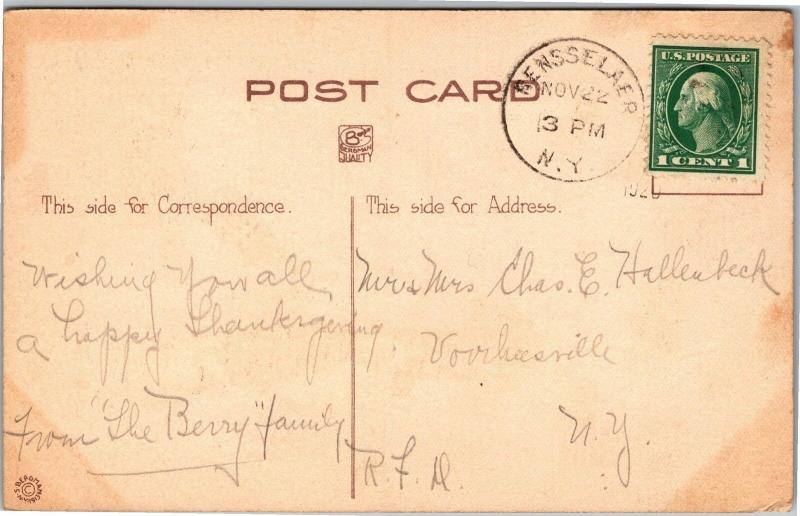 POST CARD
RENSSELAER
NOV 22
3 PM
N.Y.
U.S. POSTAGE
1 CENT 1
BERGMAN
QUALITY
This side for Correspondence.
This side for Address.
Wishing You all
a happy Thanksgiving
From "The Berry" family
Mr & Mrs Chas. E. Hallenbeck
Voorheesville
N.Y.
R.F.D